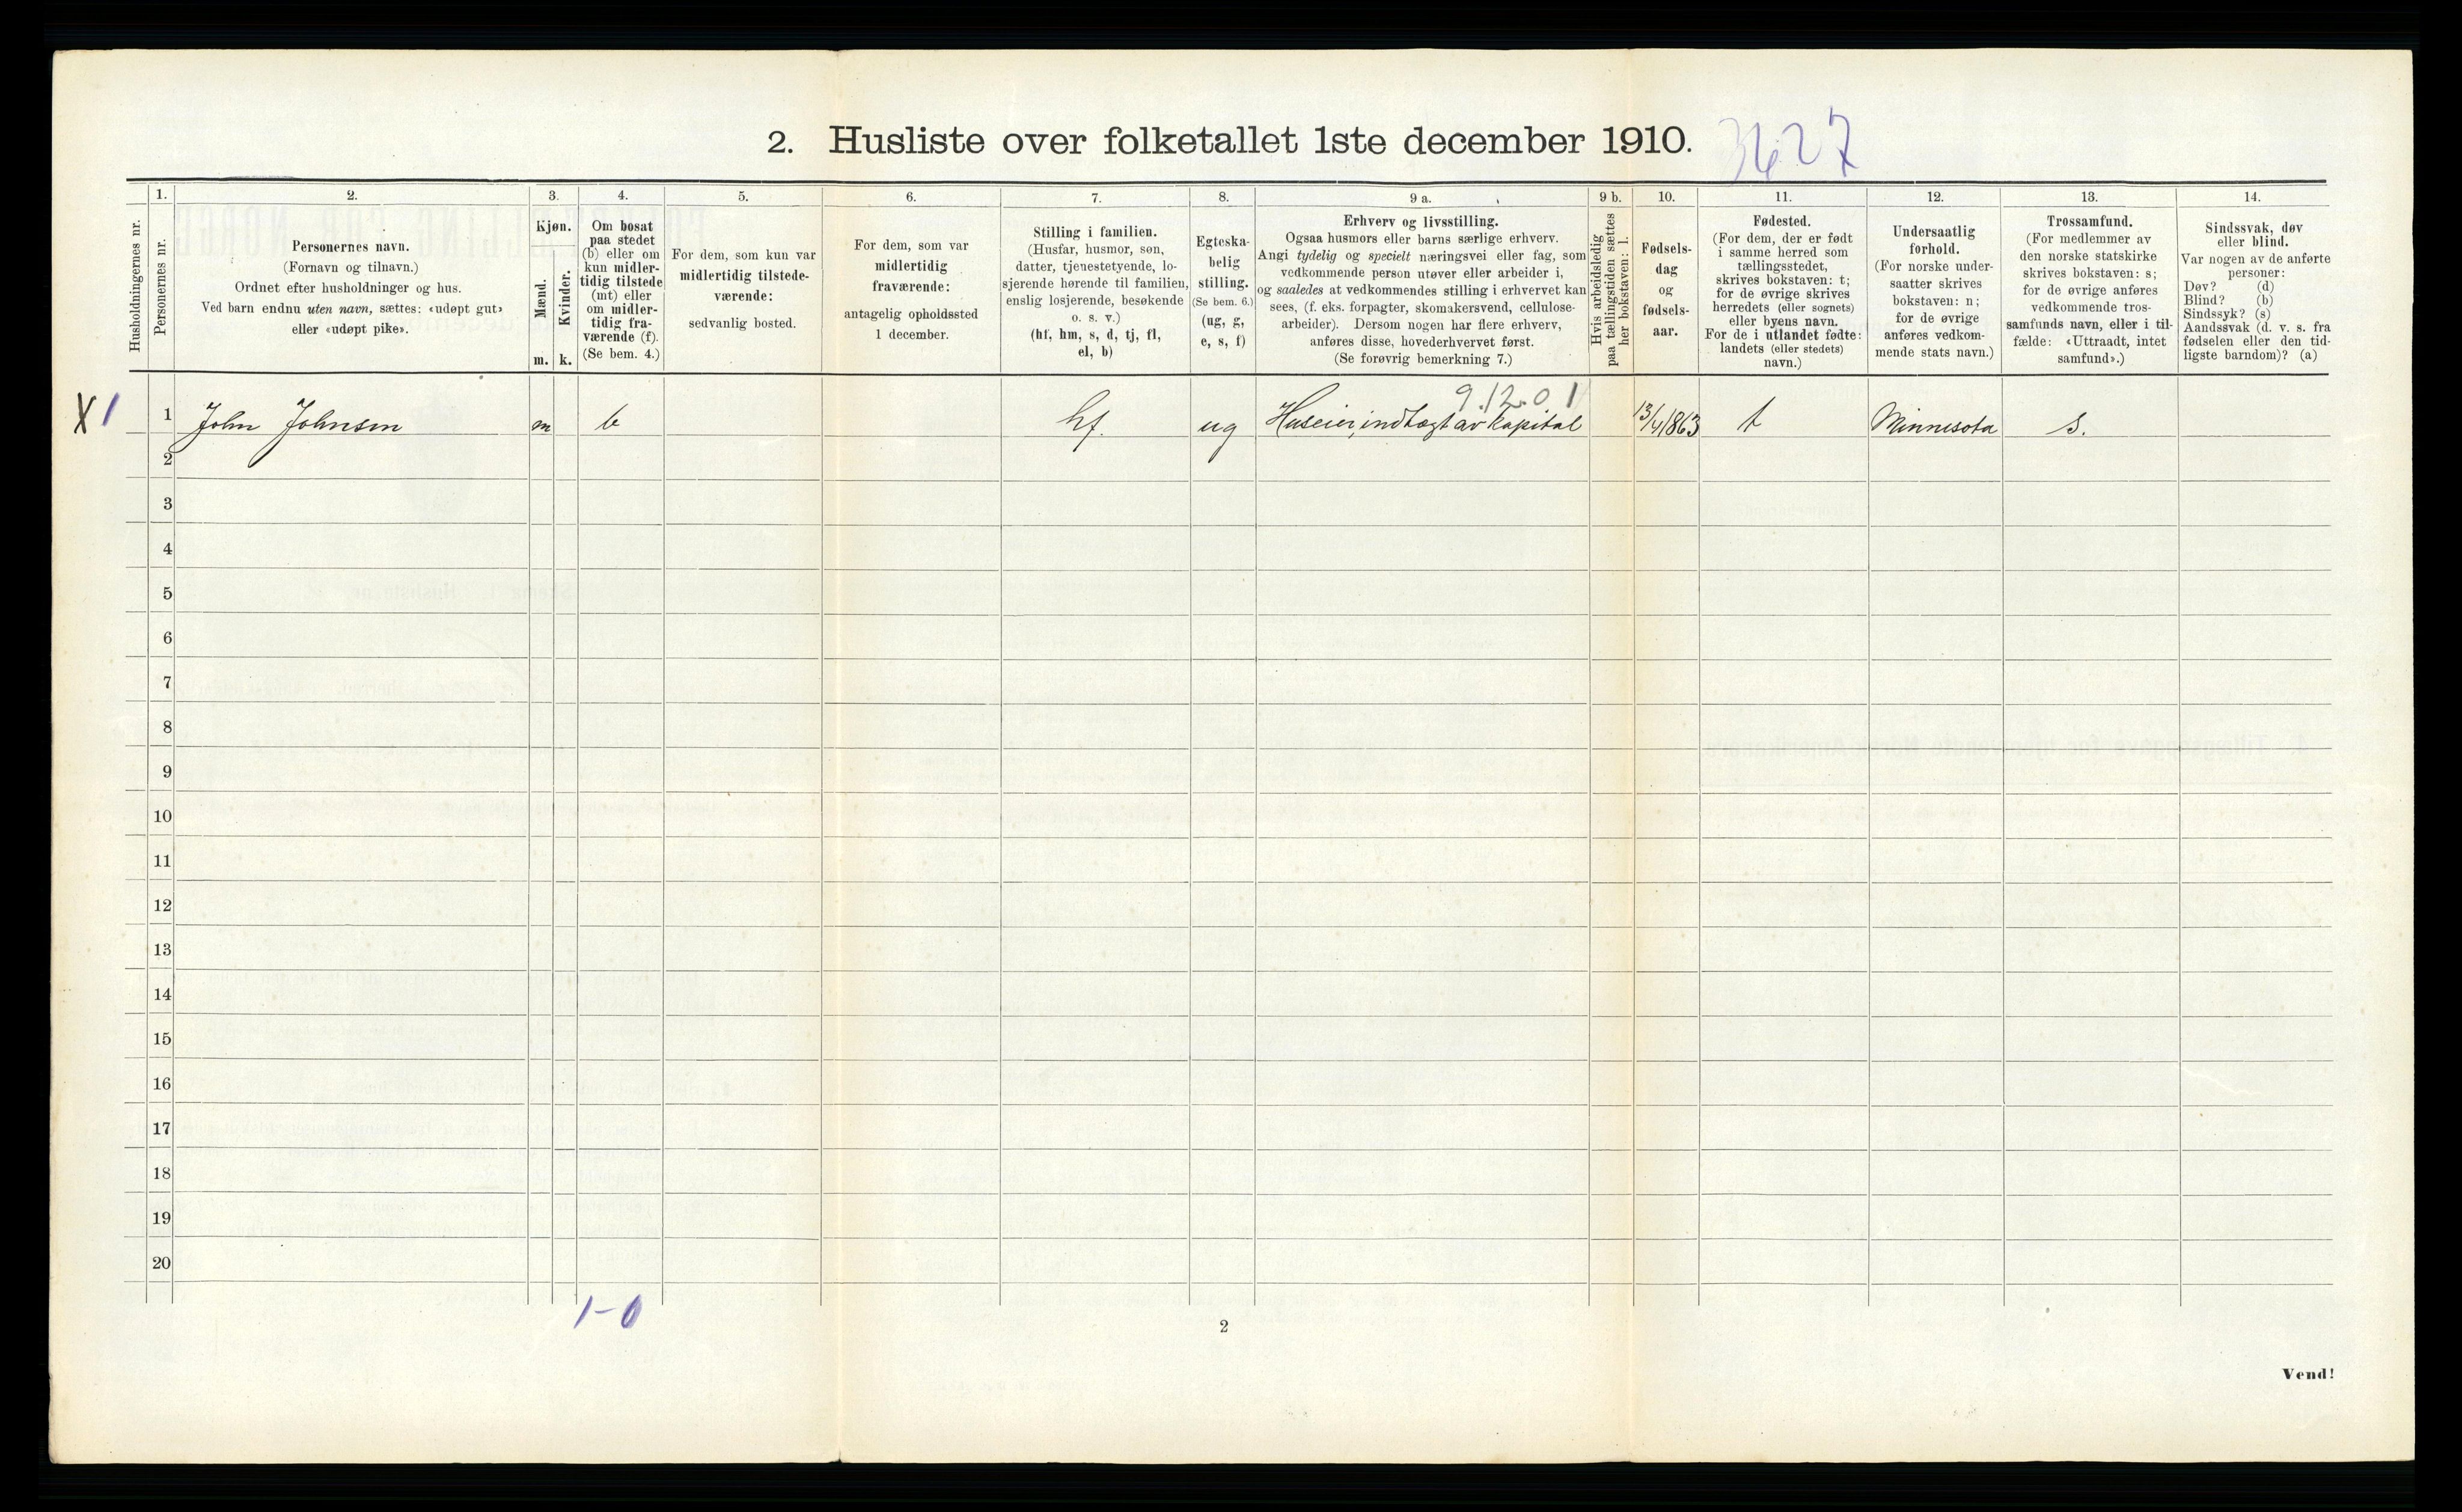 2. Husliste over folketallet 1ste december 1910. 3627
Husholdningernes nr.
1.
Personernes nr.
2.
Personernes navn.
(Fornavn og tilnavn.)
Ordnet efter husholdninger og hus.
Ved barn endnu uten navn, sættes: «udøpt gut»
eller «udøpt pike».
3.
Kjøn.
Mænd.
m.
Kvinder.
k.
4.
Om bosat
paa stedet
(b) eller om
kun midler-
tidig tilstede
(mt) eller
om midler-
tidig fra-
værende (f).
(Se bem. 4.)
5.
For dem, som kun var
midlertidig tilstede-
værende:
sedvanlig bosted.
6.
For dem, som var
midlertidig
fraværende:
antagelig opholdssted
1 december.
7.
Stilling i familien.
(Husfar, husmor, søn,
datter, tjenestetyende, lo-
sjerende hørende til familien,
enslig losjerende, besøkende
o. s. v.)
(hf, hm, s, d, tj, fl,
el, b)
8.
Egteska-
belig
stilling.
(Se bem. 6.)
(ug, g,
e, s, f)
9 a.
Erhverv og livsstilling.
Ogsaa husmors eller barns særlige erhverv.
Angi tydelig og specielt næringsvei eller fag, som
vedkommende person utøver eller arbeider i,
og saaledes at vedkommendes stilling i erhvervet kan
sees, (f. eks. forpagter, skomakersvend, cellulose-
arbeider). Dersom nogen har flere erhverv,
anføres disse, hovederhvervet først.
(Se forøvrig bemerkning 7.)
9 b.
Hvis arbeidsledig
paa tællingstiden sættes
her bokstaven: l.
10.
Fødsels-
dag
og
fødsels-
aar.
11.
Fødested.
(For dem, der er født
i samme herred som
tællingsstedet,
skrives bokstaven: t;
for de øvrige skrives
herredets (eller sognets)
eller byens navn.
For de i utlandet fødte:
landets (eller stedets)
navn.)
12.
Undersaatlig
forhold.
(For norske under-
saatter skrives
bokstaven: n;
for de øvrige
anføres vedkom-
mende stats navn.)
13.
Trossamfund.
(For medlemmer av
den norske statskirke
skrives bokstaven: s;
for de øvrige anføres
vedkommende tros-
samfunds navn, eller i til-
fælde: «Uttraadt, intet
samfund».)
14.
Sindssvak, døv
eller blind.
Var nogen av de anførte
personer:
Døv? (d)
Blind? (b)
Sindssyk? (s)
Aandssvak (d. v. s. fra
fødselen eller den tid-
ligste barndom)? (a)
9.12.01
X 1 1 John Johnsen m b hf. ug Huseier, indtægt av kapital 13/4 1863 t Minnesota s.
2
3
4
5
6
7
8
9
10
11
12
13
14
15
16
17
18
19
20
1-0
2
Vend!